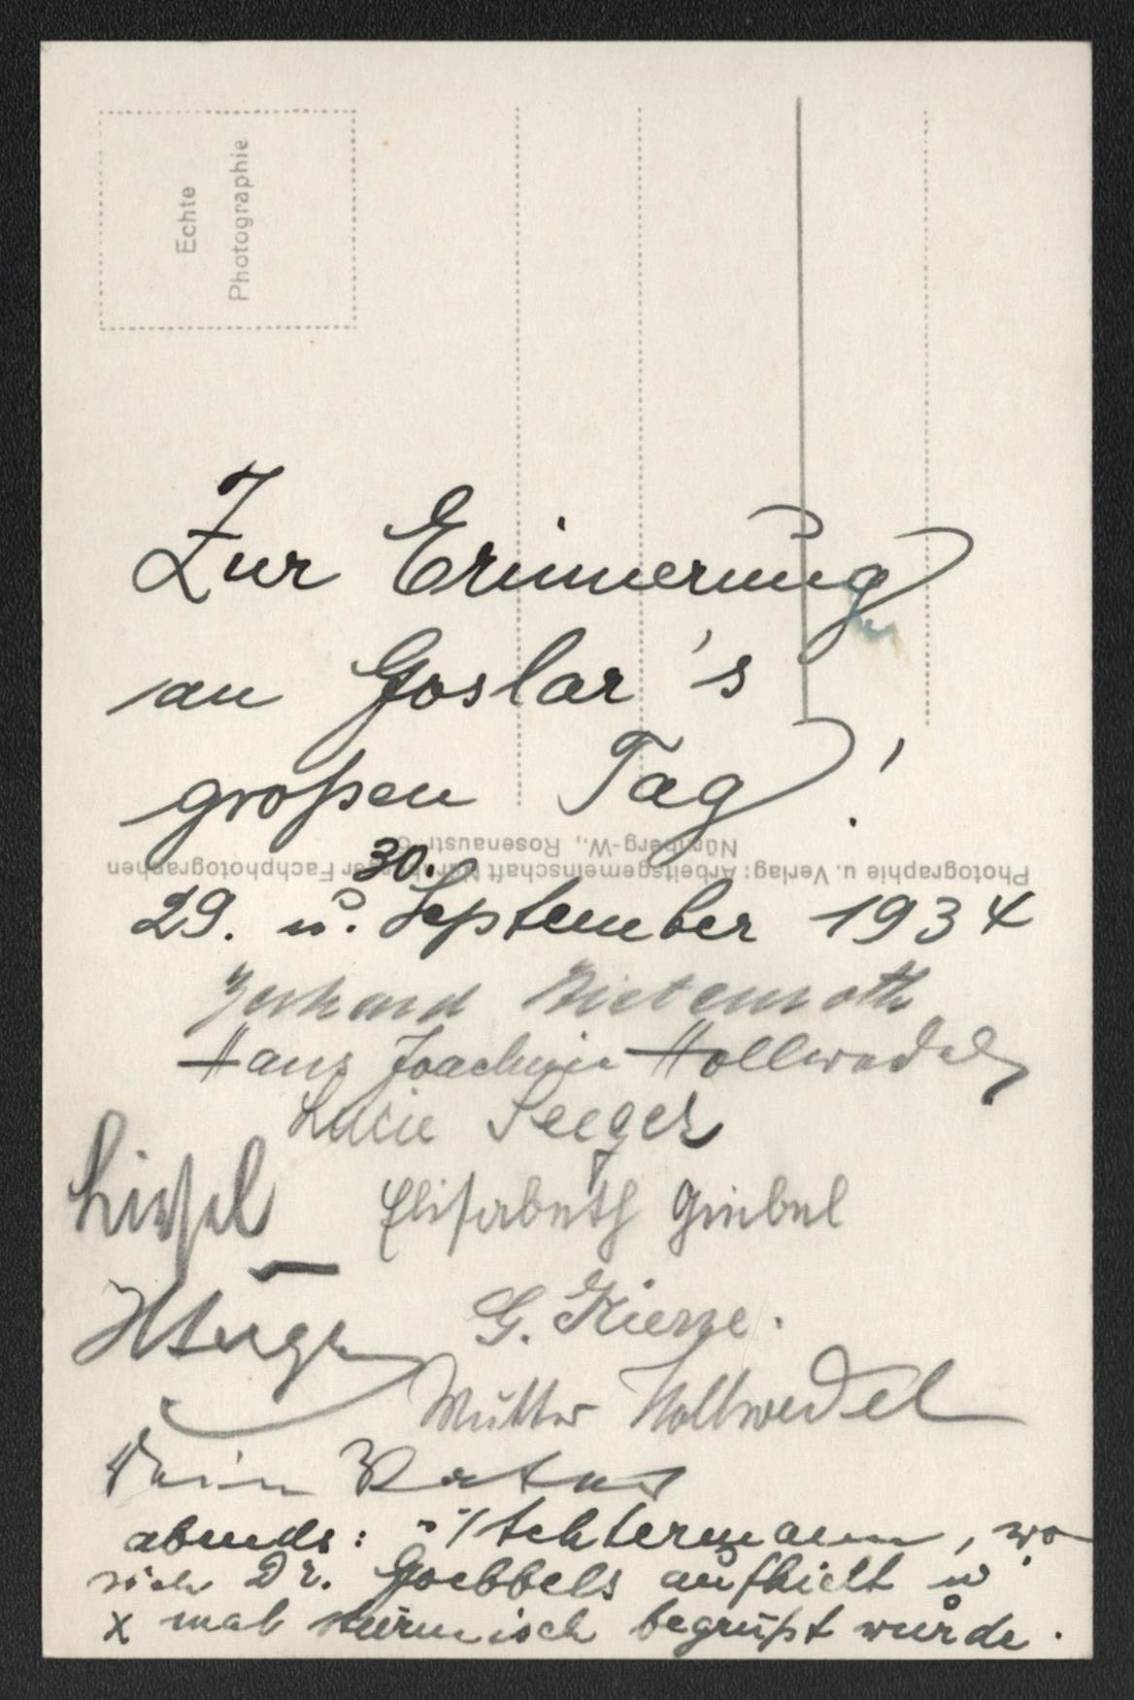 Echte
Photographie
Zur Erinnerung
an Goslar's
großen Tag!
Photographie u. Verlag: Arbeitsgemeinschaft Nürnberger Fachphotographen
Nürnberg-W., Rosenaustr.
30.
29. u. September 1934
Gerhard
Hans Joachim Hollwedel
Lucie Seeger
Liesel Elisabeth Giebel
G.
Mutter Hollwedel
Dein
abends: Achtermann, wo
sich Dr. Goebbels aufhielt u
x mal stürmisch begrüßt wurde.